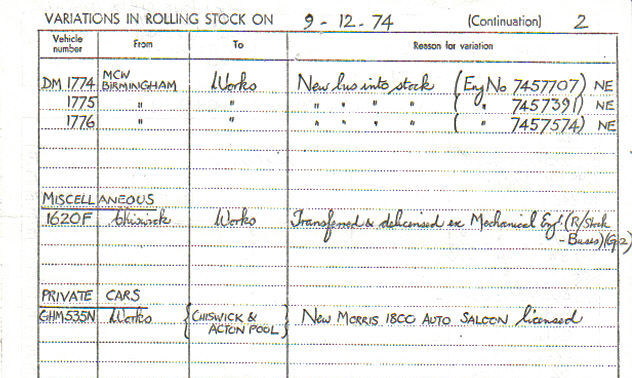 VARIATIONS IN ROLLING STOCK ON 9 - 12 - 74 (Continuation) 2
Vehicle number From To Reason for variation
DM 1774 MCW BIRMINGHAM Works New bus into stock (Eng No 7457707) NE
1775 " " " " " " ( " 7457391) NE
1776 " " " " " " ( " 7457574) NE
MISCELLANEOUS
1620F Chiswick Works Transferred & delicensed ex Mechanical Eng'. (R/Stock
- Buses)(G.2)
PRIVATE CARS
GHM535N Works {CHISWICK & ACTON POOL} New MORRIS 1800 AUTO SALOON licensed